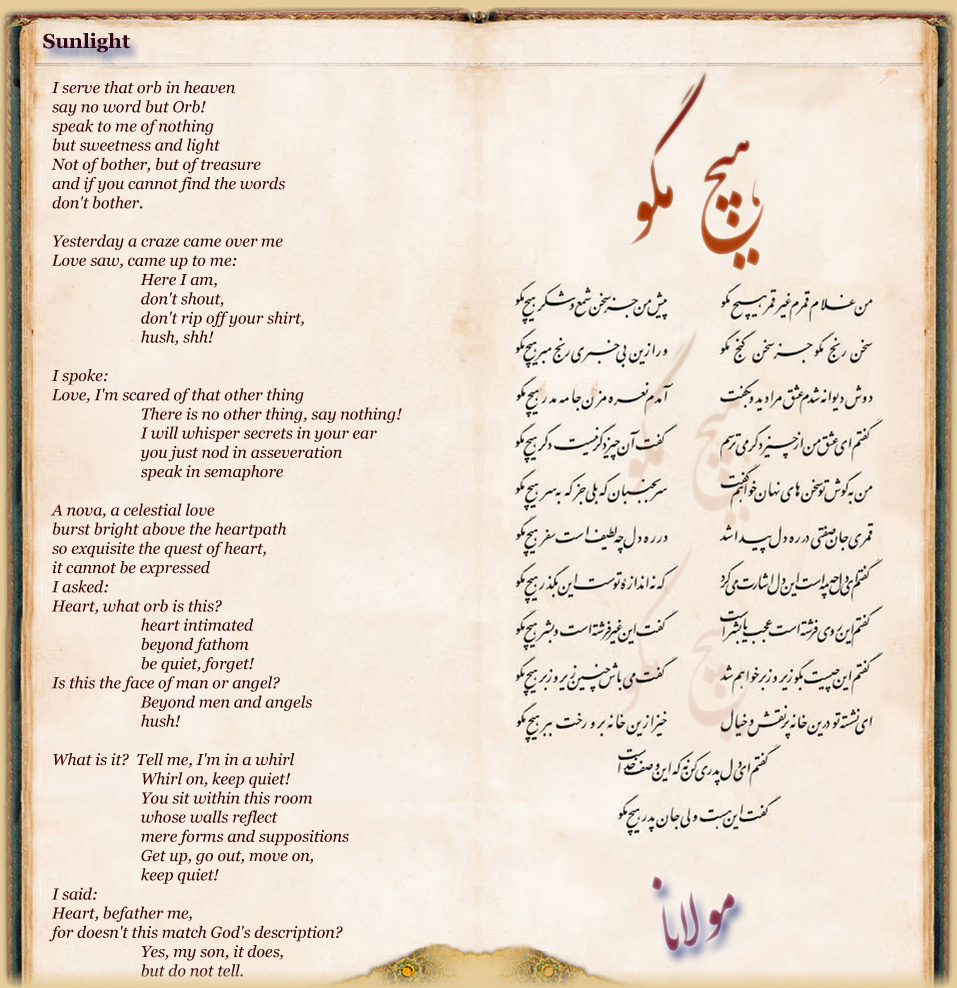 Sunlight
I serve that orb in heaven
say no word but Orb!
speak to me of nothing
but sweetness and light
Not of bother, but of treasure
and if you cannot find the words
don't bother.
Yesterday a craze came over me
Love saw, came up to me:
Here I am,
don't shout,
don't rip off your shirt,
hush, shh!
I spoke:
Love, I'm scared of that other thing
There is no other thing, say nothing!
I will whisper secrets in your ear
you just nod in asseveration
speak in semaphore
A nova, a celestial love
burst bright above the heartpath
so exquisite the quest of heart,
it cannot be expressed
I asked:
Heart, what orb is this?
heart intimated
beyond fathom
be quiet, forget!
Is this the face of man or angel?
Beyond men and angels
hush!
What is it?  Tell me, I'm in a whirl
Whirl on, keep quiet!
You sit within this room
whose walls reflect
mere forms and suppositions
Get up, go out, move on,
keep quiet!
I said:
Heart, befather me,
for doesn't this match God's description?
Yes, my son, it does,
but do not tell.
هیچ مگو
من غلام قمرم غیر قمر هیچ مگو پیش من جز سخن شمع و شکر هیچ مگو
سخن رنج مگو جز سخن گنج مگو ور ازین بی خبری رنج مبر هیچ مگو
دوش دیوانه شدم عشق مرا دید و بگفت آمدم نعره مزن جامه مدر هیچ مگو
گفتم ای عشق من از چیز دگر می ترسم گفت آن چیز دگر نیست دگر هیچ مگو
من به گوش تو سخن های نهان خواهم گفت سر بجنبان که بلی جز که به سر هیچ مگو
قمری جان صفتی در ره دل پیدا شد در ره دل چه لطیف است سفر هیچ مگو
گفتم ای دل چه مه است این دل اشارت می کرد که نه اندازهٔ توست این بگذر هیچ مگو
گفتم این روی فرشته است عجب یا بشر است گفت این غیر فرشته است و بشر هیچ مگو
گفتم این چیست بگو زیر و زبر خواهم شد گفت می باش چنین زیر و زبر هیچ مگو
ای نشسته تو درین خانه پر نقش و خیال خیز ازین خانه برو رخت ببر هیچ مگو
گفتم ای دل پدری کن نه که این وصف خداست
گفت این هست ولی جان پدر هیچ مگو
مولانا